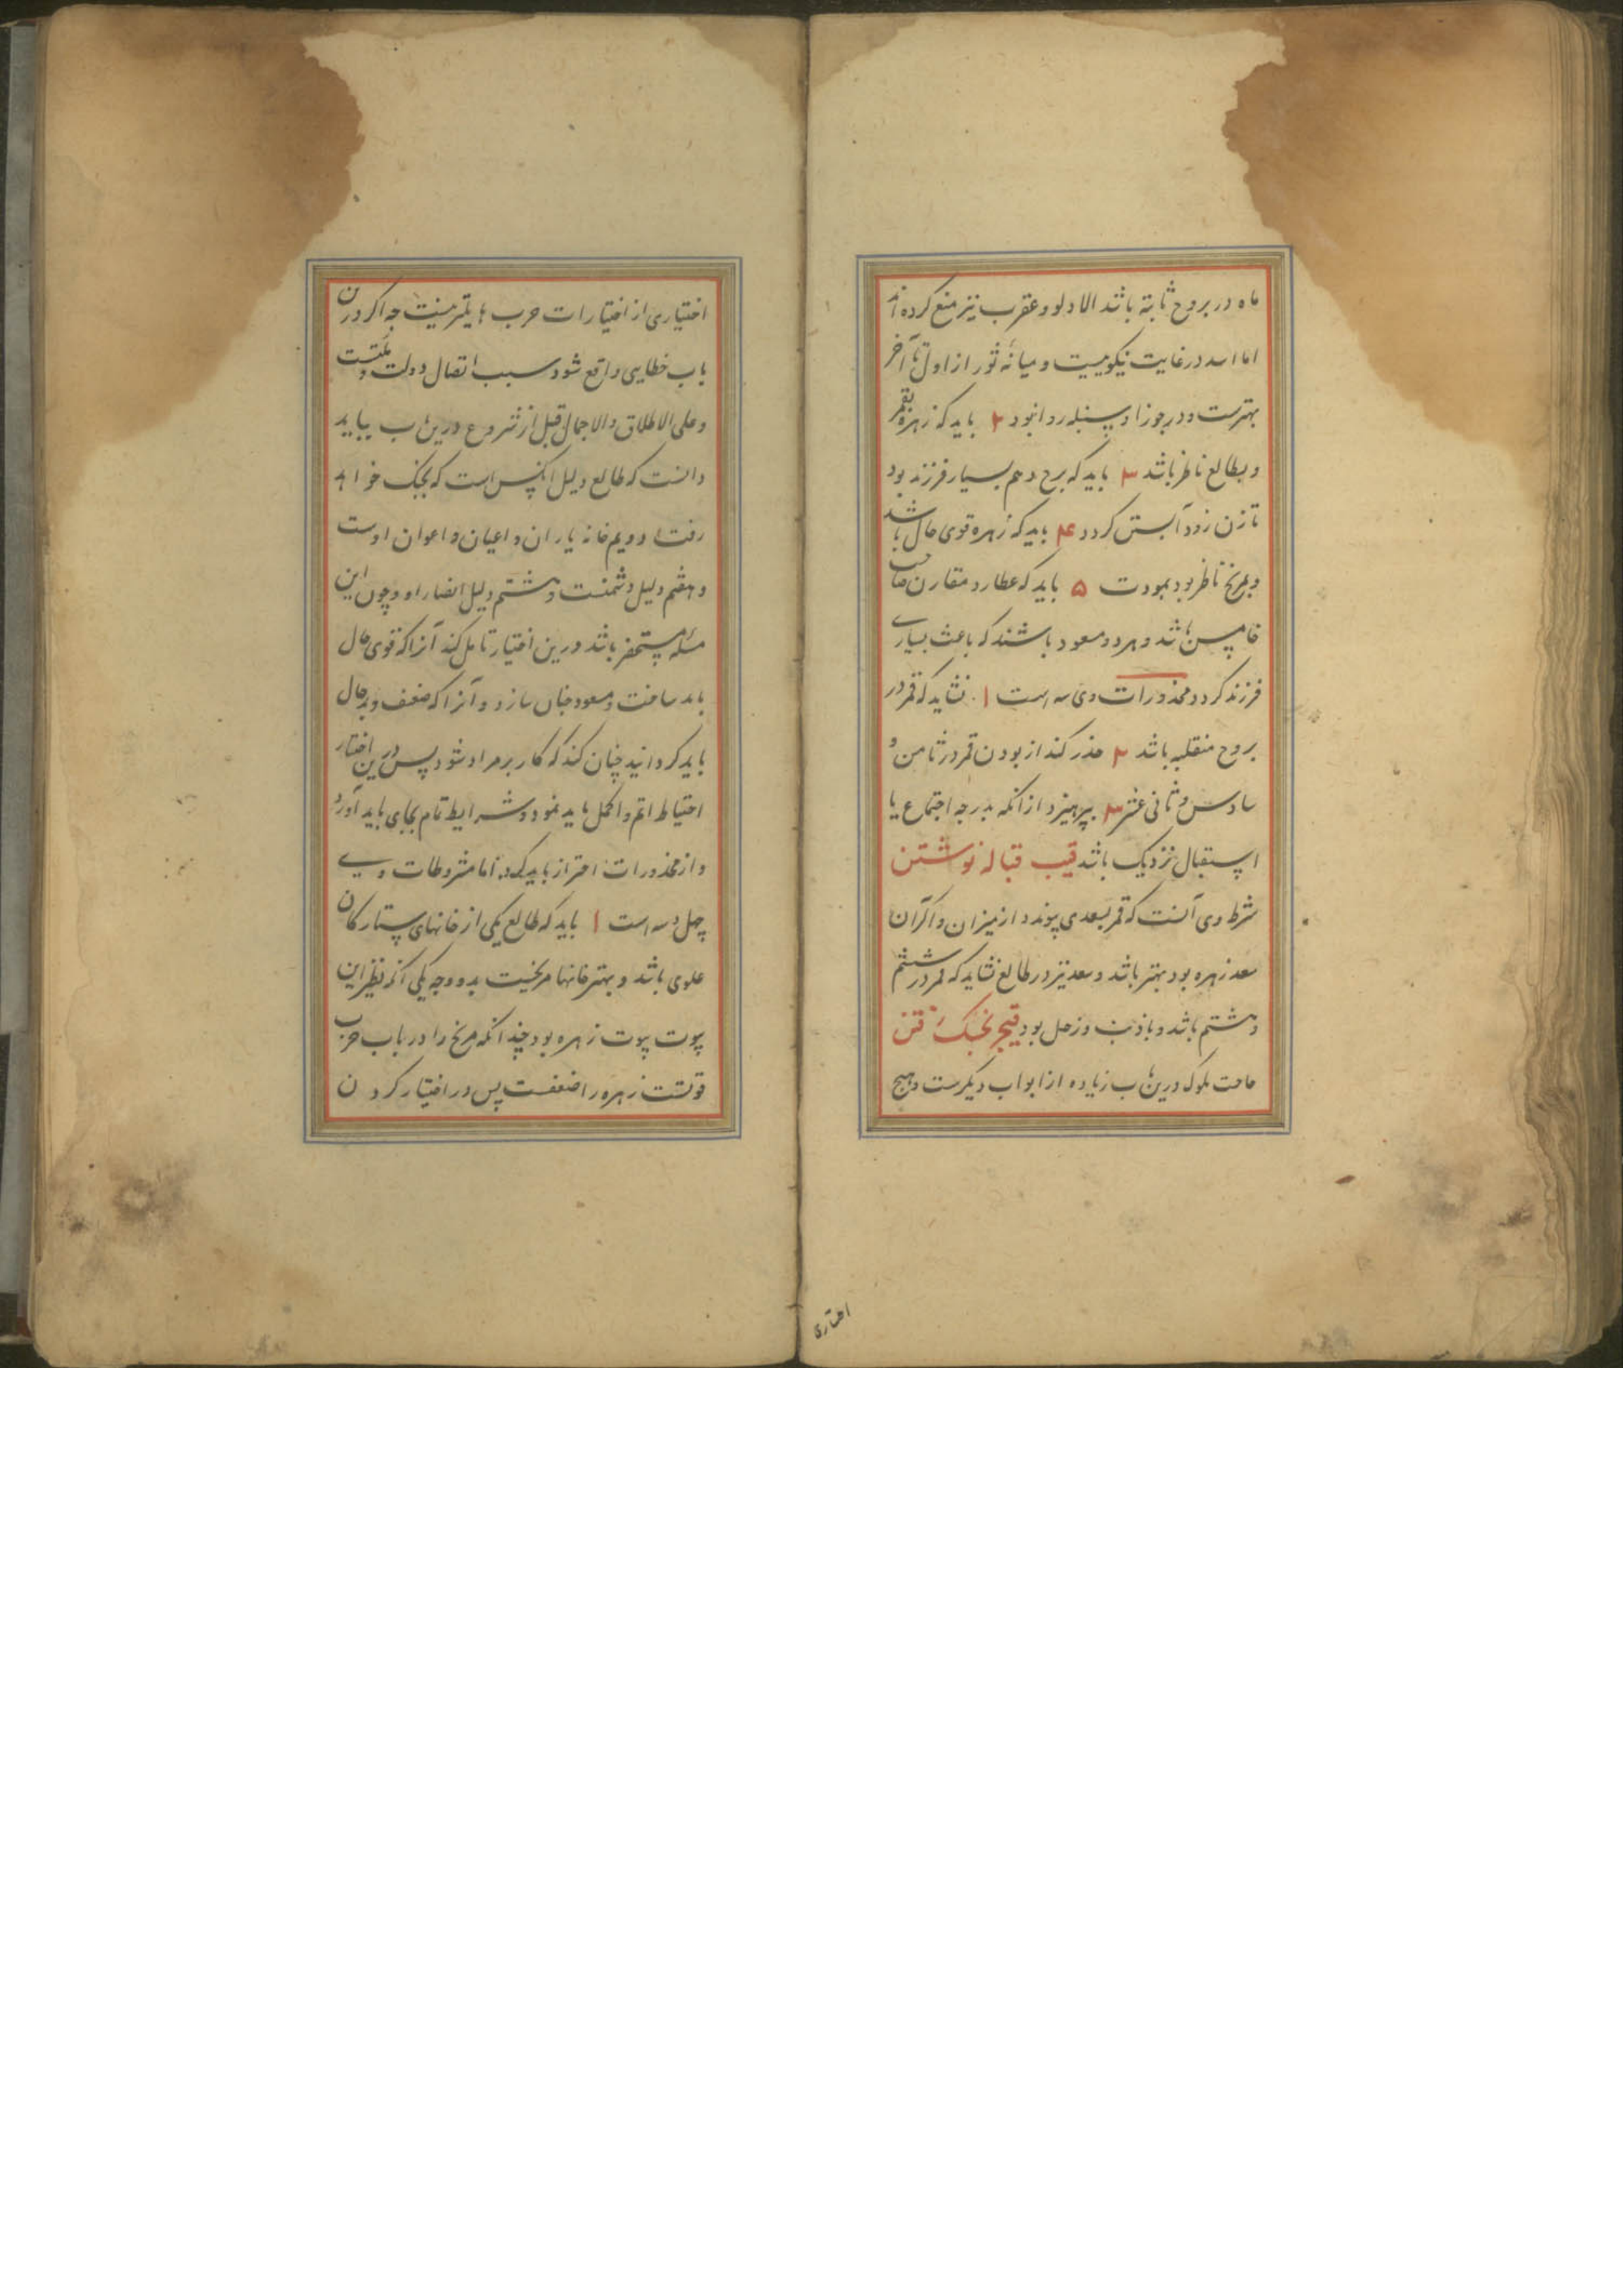 ماه در بروج ثابته باشد الا دلو و عقرب نیز منع کرده اند
اما اسد در غایت نیکوییست و میانهٔ ثور از اول تا آخر
بهترست و در جوزا و سنبله روا نبود ۲ باید که زهره بقمر
و بطالع ناظر باشد ۳ باید که برج دهم بسیار فرزند بود
تا زن زود آبستن کردد ۴ باید که زهره قوی حال باشد
و بمریخ ناظر بود بمودت ۵ باید که عطارد مقارن صاحب
خامس باشد و هر دو مسعود باشند که باعث بسیاری
فرزند کردد و محذورات وی سه است ۱ نشاید که قمر در
بروج منقلبه باشد ۲ حذر کند از بودن قمر در ثامن و
سادس و ثانی عشر ۳ بپرهیزد از انکه بدرجه اجتماع یا
استقبال نزدیک باشد قیب قباله نوشتن
شرط وی آنست که قمر بسعدی پیوندد از میزان و اکر آن
سعد زهره بود بهتر باشد و سعد نیز در طالع نشاید که قمر در ششم
و هشتم باشد و با ذنب و زحل بود قیج بجنک رفتن
حاجت ملوک درین باب زیاده از ابواب دیکرست و هیچ
اختیاری
اختیاری از اختیارات حرب هایلتر نیست جه اکر درین
باب خطایی واقع شود سبب انتقال دولت و مکنتست
و علی الاطلاق و الاجمال قبل از شروع درین باب بباید
دانست که طالع دلیل انکس است که بجنک خواهد
رفت و دویم خانه یاران و اعیان و اعوان اوست
و هفتم دلیل دشمنست و هشتم دلیل انصار او و چون این
مسئله مستحضر باشد درین اختیار تامل کند آنرا که قوی حال
باید ساخت و مسعود جنان سازد و آنرا که ضعیف و بد حال
باید کردانید چنان کند که کار بر مراد شود پس درین اختیار
احتیاط اتم و اکمل باید نمود و شرایط تمام بجای باید آورد
و از محذورات احتراز باید کرد اما مشروطات وی
چهل و سه است ۱ باید که طالع یکی از خانهای ستارکان
علوی باشد و بهترخانها مریخیست بدو وجه یکی آنکه نظیر این
بیوت بیوت زهره بود چندانکه مریخ را در باب حرب
قوتست زهره را ضعفست پس در اختیار کردن